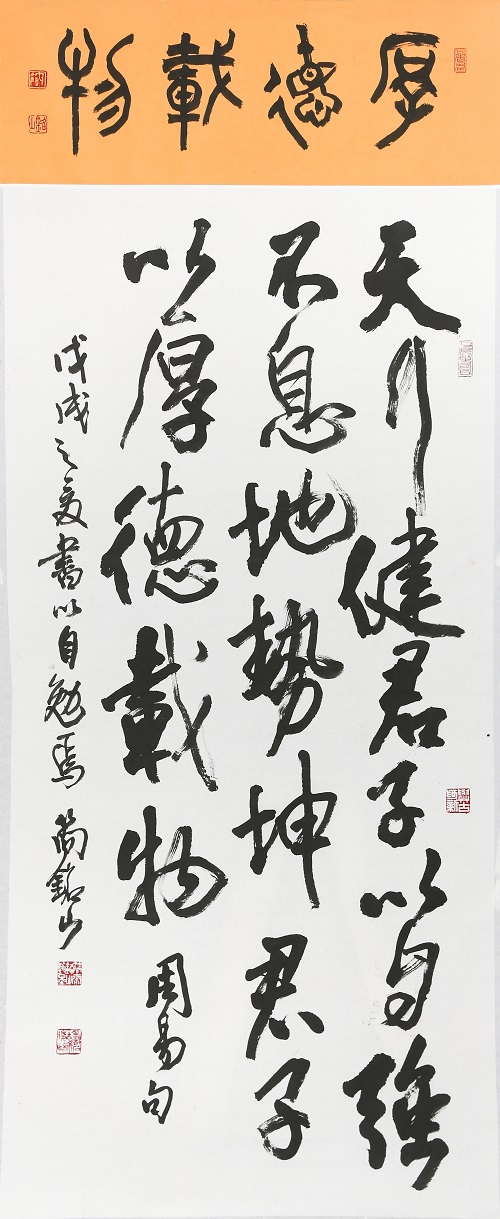 厚德載物
天行健君子以自強
不息地勢坤君子
以厚德載物 周易句
戊戌之夏書以自勉焉 銘山